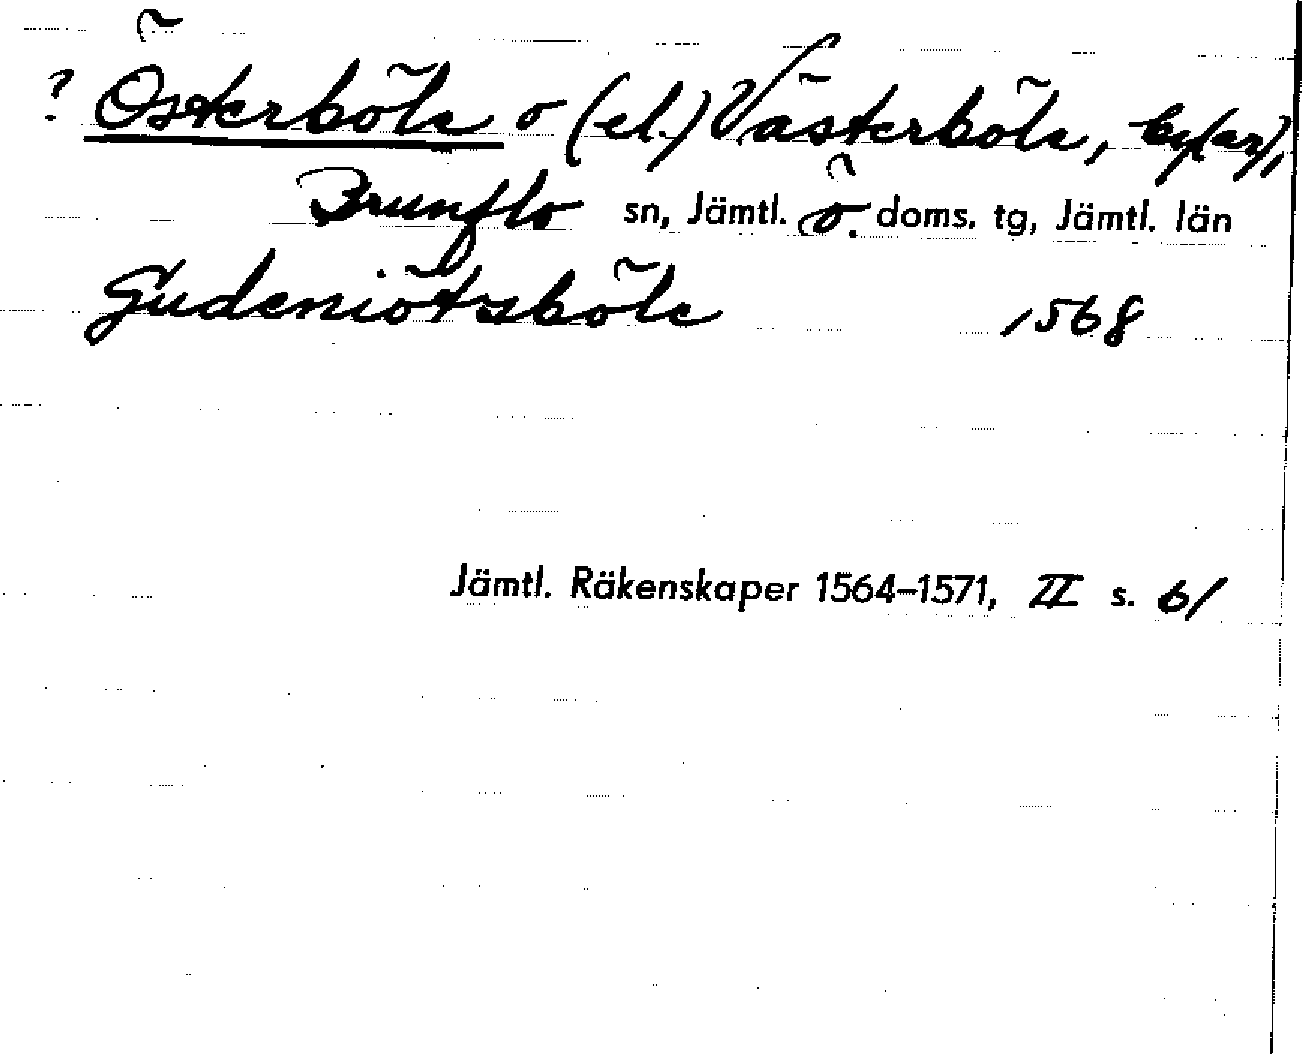 ? Österböle o (el.) Västerböle, by(ar),
Brunflo sn, Jämtl. ö. doms. tg, Jämtl. län
Gudeniötsböle 1568
Jämtl. Räkenskaper 1564–1571, II s. 61